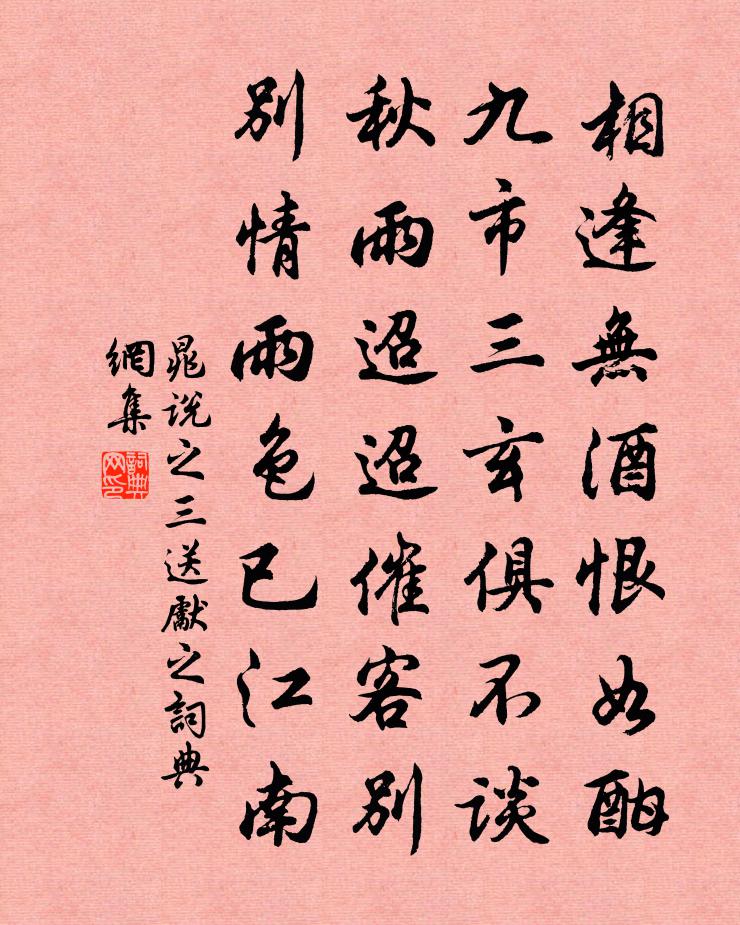 相逢無酒恨如酣
九市三玄俱不談
秋雨迢迢催客別
別情雨色已江南
晁說之三送獻之詞典
網集
詞典
网印